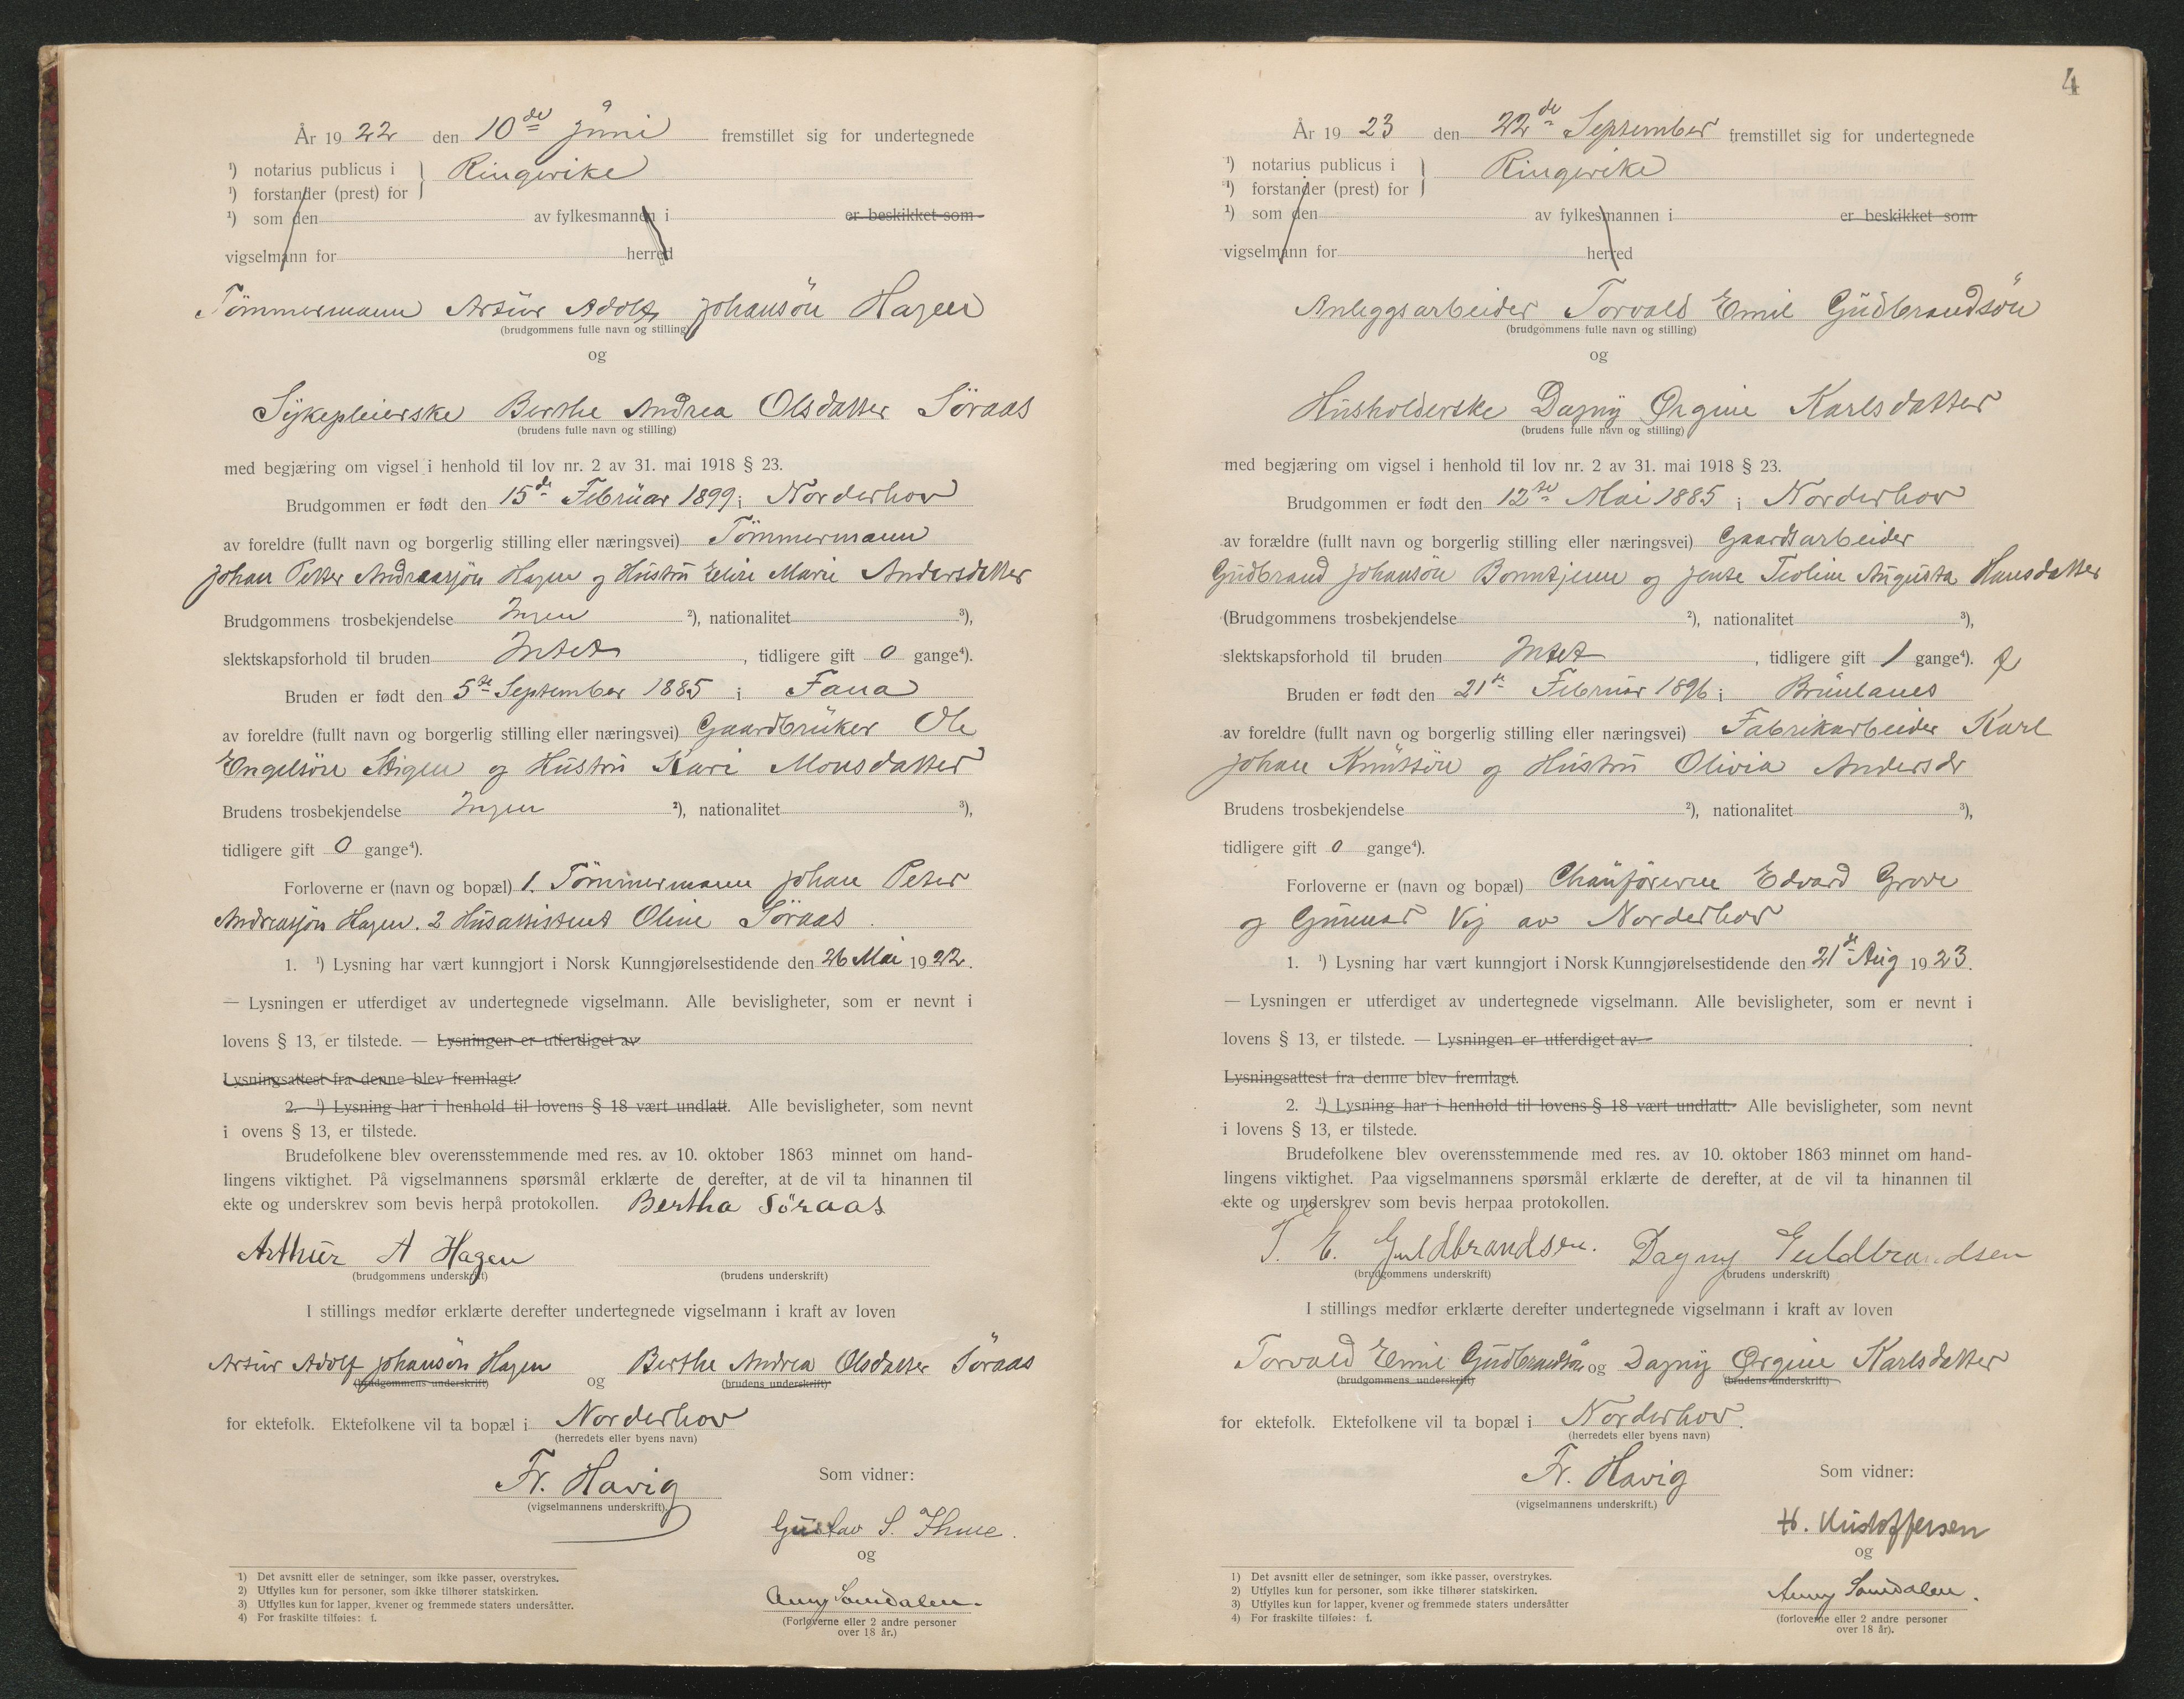 År 1922 den 10de Juni fremstillet sig for undertegnede
¹) notarius publicus i } Ringerike
¹) forstander (prest) for
¹) som den av fylkesmannen i er beskikket som
vigselmann for herred
Tömmermann Artur Adolf Johansön Hagen
(brudgommens fulle navn og stilling)
og
Sykepleierske Berthe Andrea Olsdatter Söraas
(brudens fulle navn og stilling)
med begjæring om vigsel i henhold til lov nr. 2 av 31. mai 1918 § 23.
Brudgommen er født den 15de Februar 1899 i Norderhov
av foreldre (fullt navn og borgerlig stilling eller næringsvei) Tömmermann
Johan Petter Andreasjön Hagen og Hustru Elise Marie Andersdatter
Brudgommens trosbekjendelse Ingen ²), nationalitet ³),
slektskapsforhold til bruden Intet, tidligere gift 0 gange⁴).
Bruden er født den 5te September 1885 i Fana
av foreldre (fullt navn og borgerlig stilling eller næringsvei) Gaardbruker Ole
Engelsön Stigen og Hustru Kari Monsdatter
Brudens trosbekjendelse Ingen ²), nationalitet ³),
tidligere gift 0 gange⁴).
Forloverne er (navn og bopæl) 1. Tömmermann Johan Peter
Andreasjön Hagen. 2 Husassistent Oline Söraas.
1. ¹) Lysning har vært kunngjort i Norsk Kunngjørelsestidende den 26 Mai 1922.
— Lysningen er utferdiget av undertegnede vigselmann. Alle bevisligheter, som er nevnt i
lovens § 13, er tilstede. — Lysningen er utferdiget av
Lysningsattest fra denne blev fremlagt.
2. ¹) Lysning har i henhold til lovens § 18 vært undlatt. Alle bevisligheter, som nevnt
i ovens § 13, er tilstede.
Brudefolkene blev overensstemmende med res. av 10. oktober 1863 minnet om hand-
lingens viktighet. På vigselmannens spørsmål erklærte de derefter, at de vil ta hinannen til
ekte og underskrev som bevis herpå protokollen. Bertha Söraas
Arthur A Hagen
(brudgommens underskrift) (brudens underskrift)
I stillings medfør erklærte derefter undertegnede vigselmann i kraft av loven
Artur Adolf Johansön Hagen og Berthe Andrea Olsdatter Söraas
(brudgommens underskrift) (brudens underskrift)
for ektefolk. Ektefolkene vil ta bopæl i Norderhov
(herredets eller byens navn)
Fr. Havig
(vigselmannens underskrift)
Som vidner:
Gustav S. Thne.
og
Anny Somdalen.
(Forløverne eller 2 andre personer
over 18 år.)
1) Det avsnitt eller de setninger, som ikke passer, overstrykes.
2) Utfylles kun for personer, som ikke tilhører statskirken.
3) Utfylles kun for lapper, kvener og fremmede staters undersåtter.
4) For fraskilte tilføies: f.
4
År 1923 den 22de September fremstillet sig for undertegnede
¹) notarius publicus i } Ringerike
¹) forstander (prest) for
¹) som den av fylkesmannen i er beskikket som
vigselmann for herred
Anleggsarbeider Torvald Emil Gudbrandsön
(brudgommens fulle navn og stilling)
og
Husholderske Dagny Ørgine Karlsdatter
(brudens fulle navn og stilling)
med begjæring om vigsel i henhold til lov nr. 2 av 31. mai 1918 § 23.
Brudgommen er født den 12te Mai 1885 i Norderhov
av forældre (fullt navn og borgerlig stilling eller næringsvei) Gaardsarbeider
Gudbrand Johansön Bonntjern og Jente Teoline Augusta Hansdatter
(Brudgommens trosbekjendelse ²), nationalitet ³),
slektskapsforhold til bruden Intet, tidligere gift 1 gange⁴). f
Bruden er født den 21de Februar 1896 i Brunlanes
av foreldre (fullt navn og borgerlig stilling eller næringsvei) Fabrikarbeider Karl
Johan Knutsön og Hustru Olivia Andersdr
Brudens trosbekjendelse ²), nationalitet ³),
tidligere gift 0 gange⁴).
Forloverne er (navn og bopæl) Chauförerne Edvard Grove
og Gunnar Vij av Norderhov
1. ¹) Lysning har vært kunngjort i Norsk Kunngjørelsestidende den 21de Aug 1923.
— Lysningen er utferdiget av undertegnede vigselmann. Alle bevisligheter, som er nevnt i
lovens § 13, er tilstede. — Lysningen er utferdiget av
Lysningsattest fra denne blev fremlagt.
2. ¹) Lysning har i henhold til lovens § 18 vært undlatt. Alle bevisligheter, som nevnt
i lovens § 13, er tilstede.
Brudefolkene blev overensstemmende med res. av 10. oktober 1863 minnet om hand-
lingens viktighet. Paa vigselmannens spørsmål erklærte de derefter, at de vil ta hinannen til
ekte og underskrev som bevis herpaa protokollen.
T. E. Guldbrandsen. Dagny Guldbrandsen
(brudgommens underskrift) (brudens underskrift)
I stillings medfør erklærte derefter undertegnede vigselmann i kraft av loven
Torvald Emil Gudbrandsön og Dagny Ørgine Karlsdatter
(brudgommens underskrift) (brudens underskrift)
for ektefolk. Ektefolkene vil ta bopæl i Norderhov.
(herredets eller byens navn)
Fr. Havig
(vigselmannens underskrift.)
Som vidner:
H. Kristoffersen
og
Anny Somdalen.
(forloverne eller 2 andre personer
over 18 år).
1) Det avsnitt eller de setninger, som ikke passer, overstrykes.
2) Utfylles kun for personer, som ikke tilhører statskirken.
3) Utfylles kun for lapper, kvener og fremmede staters undersåtter
4) For fraskilte tilføies: f.